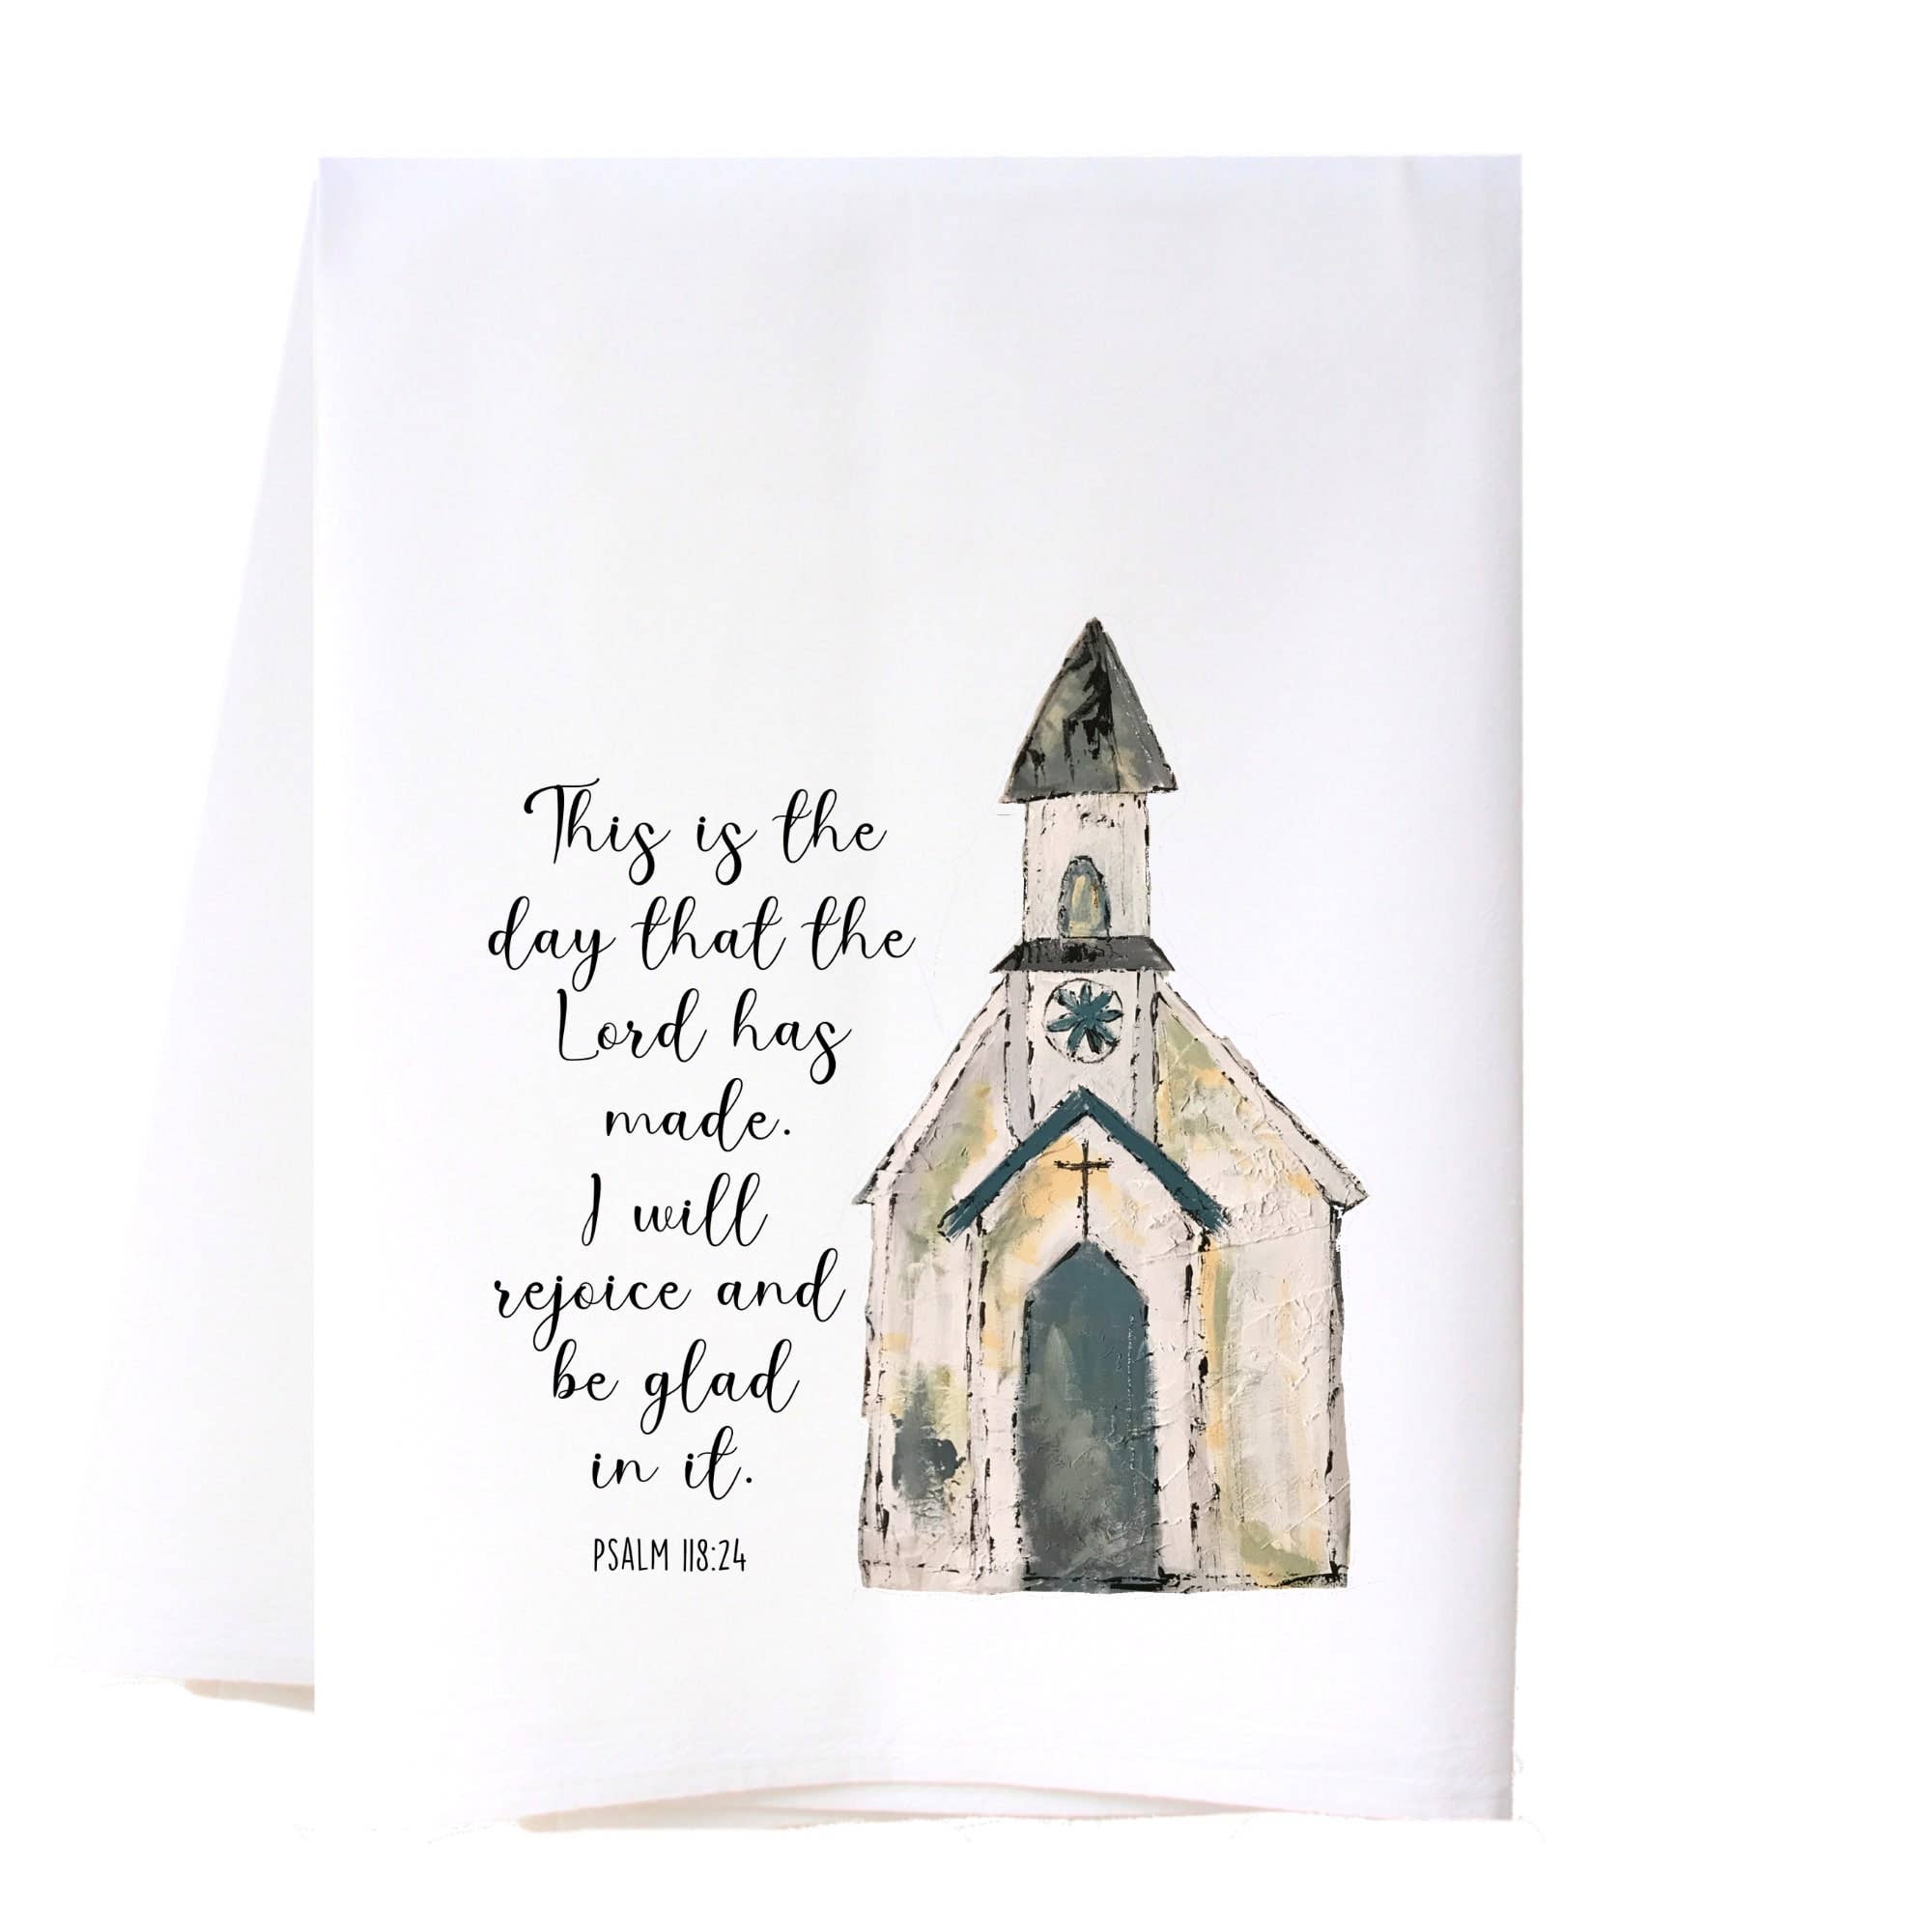 This is the
day that the
Lord has
made.
I will
rejoice and
be glad
in it.
PSALM 118:24